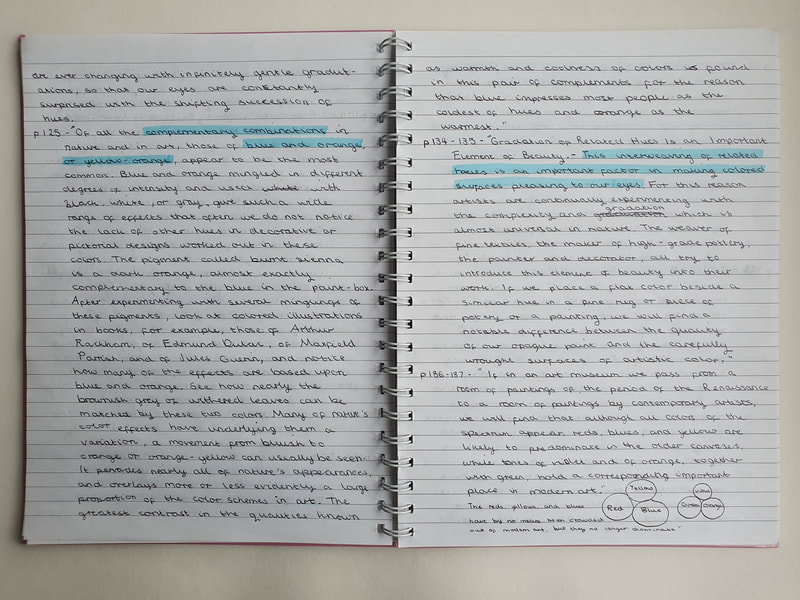 are ever changing with infinitely gentle gradat-
ations, so that our eyes are constantly
surprised with the shifting succession of
hues.
p125 - "Of all the complementary combinations in
nature and in art, those of blue and orange,
or yellow-orange, appear to be the most
common. Blue and orange mingled in different
degrees of intensity and used with
black, white, or gray, give such a wide
range of effects that often we do not notice
the lack of other hues in decorative or
pictorial designs worked out in these
colors. The pigment called burnt sienna,
is a dark orange, almost exactly
complementary to the blue in the paint-box.
After experimenting with several minglings of
these pigments, look at colored illustrations
in books, for example, those of Arthur
Rackham, of Edmund Dulac, of Maxfield
Parish, and of Jules Guerin, and notice
how many of the effects are based upon
blue and orange. See how nearly the
brownish grey of withered leaves can be
matched by these two colors. Many of nature's
color effects have underlying them a
variation, a movement from bluish to
orange or orange-yellow can usually be seen.
It pervades nearly all of nature's appearances,
and overlays more or less evidently a large
proportion of the color schemes in art. The
greatest contrast in the qualities known
as warmth and coolness of colors is found
in this pair of complements for the reason
that blue impresses most people as the
coldest of hues and orange as the
warmest."
p134-135 - "Gradation of Related Hues is an Important
Element of Beauty - This interweaving of related
hues is an important factor in making colored
surfaces pleasing to our eyes. For this reason
artists are continually experimenting with
the complexity and gradation which is
almost universal in nature. The weaver of
fine textiles, the maker of high-grade pottery,
the painter and decorator, all try to
introduce this element of beauty into their
work. If we place a flat color beside a
similar hue in a fine rug or piece of
potery or a painting, we will find a
notable difference between the quality
of our opaque paint and the carefully
wrought surfaces of artistic color."
p186-187 - "If in an art museum we pass from a
room of paintings of the period of the Renaissance
to a room of paintings by contemporary artists,
we will find that although all colors of the
spectrum appear, reds, blues, and yellow are
likely to predominate in the older canvases,
while tones of violet and of orange, together
with green, hold a corresponding important
place in modern art."
The reds, yellows, and blues
have by no means been crowded
out of modern art, but they no longer dominate"
Yellow
Red
Blue
Violet
Green
Orange